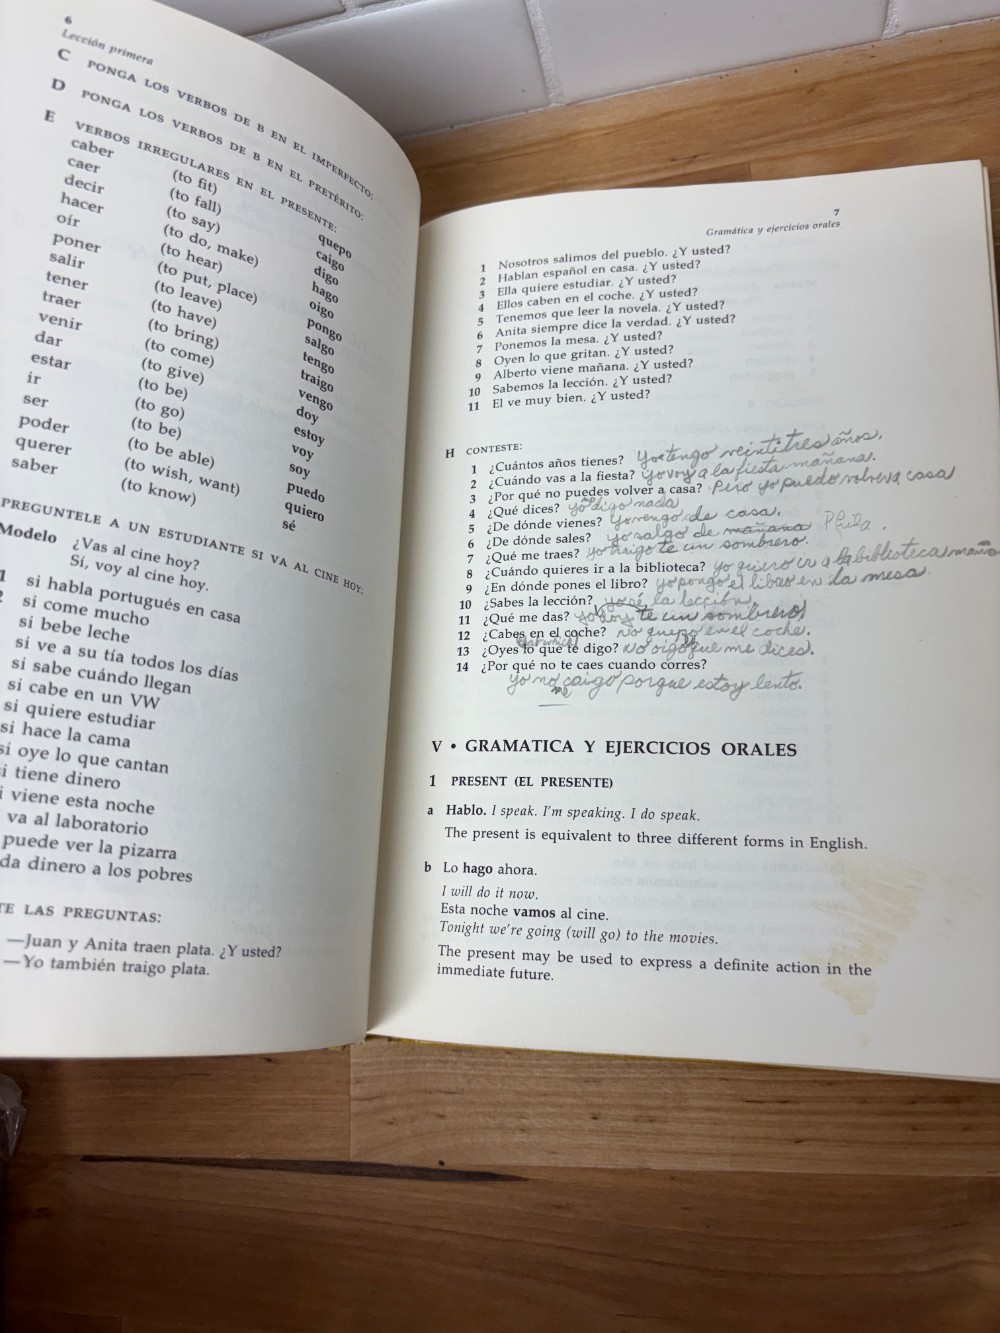 6
Lección primera
C PONGA LOS VERBOS DE B EN EL IMPERFECTO:
D PONGA LOS VERBOS DE B EN EL PRETÉRITO:
E VERBOS IRREGULARES EN EL PRESENTE:
caber (to fit) quepo
caer (to fall) caigo
decir (to say) digo
hacer (to do, make) hago
oír (to hear) oigo
poner (to put, place) pongo
salir (to leave) salgo
tener (to have) tengo
traer (to bring) traigo
venir (to come) vengo
dar (to give) doy
estar (to be) estoy
ir (to go) voy
ser (to be) soy
poder (to be able) puedo
querer (to wish, want) quiero
saber (to know) sé
PREGUNTELE A UN ESTUDIANTE SI VA AL CINE HOY:
Modelo ¿Vas al cine hoy?
Sí, voy al cine hoy.
1 si habla portugués en casa
2 si come mucho
si bebe leche
si ve a su tía todos los días
si sabe cuándo llegan
si cabe en un VW
si quiere estudiar
si hace la cama
si oye lo que cantan
si tiene dinero
si viene esta noche
va al laboratorio
puede ver la pizarra
da dinero a los pobres
TE LAS PREGUNTAS:
—Juan y Anita traen plata. ¿Y usted?
—Yo también traigo plata.
7
Gramática y ejercicios orales
1 Nosotros salimos del pueblo. ¿Y usted?
2 Hablan español en casa. ¿Y usted?
3 Ella quiere estudiar. ¿Y usted?
4 Ellos caben en el coche. ¿Y usted?
5 Tenemos que leer la novela. ¿Y usted?
6 Anita siempre dice la verdad. ¿Y usted?
7 Ponemos la mesa. ¿Y usted?
8 Oyen lo que gritan. ¿Y usted?
9 Alberto viene mañana. ¿Y usted?
10 Sabemos la lección. ¿Y usted?
11 El ve muy bien. ¿Y usted?
H CONTESTE:
1 ¿Cuántos años tienes? yo tengo veintitres años.
2 ¿Cuándo vas a la fiesta? yo voy a la fiesta mañana.
3 ¿Por qué no puedes volver a casa? Pero yo puedo volver a casa
4 ¿Qué dices? yo no digo nada
5 ¿De dónde vienes? yo vengo de casa.
6 ¿De dónde sales? yo salgo de mañana Phila.
7 ¿Qué me traes? yo traigo te un sombrero.
8 ¿Cuándo quieres ir a la biblioteca? yo quiero ir a la biblioteca mañana
9 ¿En dónde pones el libro? yo pongo el libro en la mesa.
10 ¿Sabes la lección? yo sé la lección
11 ¿Qué me das? yo doy te un sombrero
12 ¿Cabes en el coche? no quepo en el coche.
13 ¿Oyes lo que te digo? no oigo que me dices.
14 ¿Por qué no te caes cuando corres?
yo no me caigo porque estoy lento.
V • GRAMATICA Y EJERCICIOS ORALES
1 PRESENT (EL PRESENTE)
a Hablo. I speak. I'm speaking. I do speak.
The present is equivalent to three different forms in English.
b Lo hago ahora.
I will do it now.
Esta noche vamos al cine.
Tonight we're going (will go) to the movies.
The present may be used to express a definite action in the
immediate future.